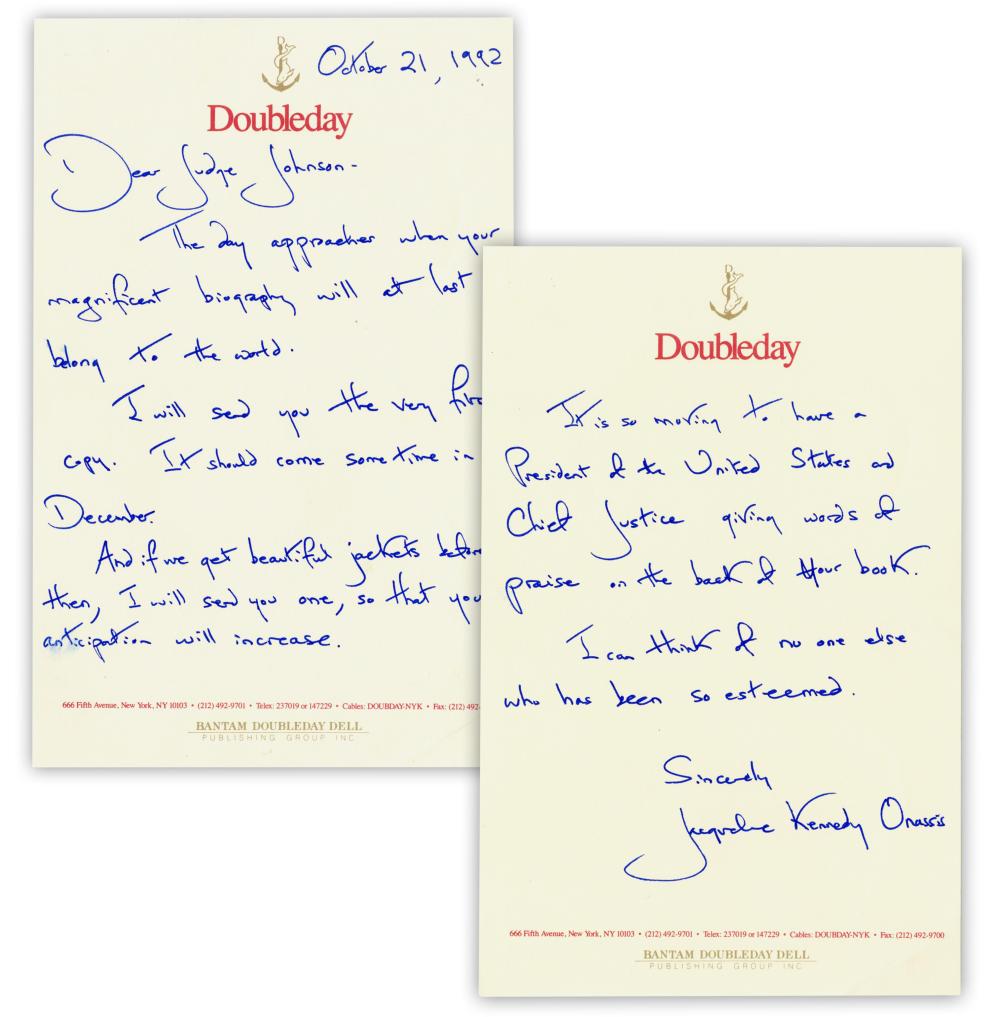 October 21, 1992
Doubleday
Dear Judge Johnson-
The day approaches when your
magnificent biography will at last
belong to the world.
I will send you the very firs
copy. It should come sometime in
December.
And if we get beautiful jackets before
then, I will send you one, so that you
anticipation will increase.
666 Fifth Avenue, New York, NY 10103 • (212) 492-9701 • Telex: 237019 or 147229 • Cables: DOUBDAY-NYK • Fax: (212) 492-
BANTAM DOUBLEDAY DELL
PUBLISHING GROUP INC
Doubleday
It is so moving to have a
President of the United States and
Chief Justice giving words of
praise on the back of your book.
I can think of no one else
who has been so esteemed.
Sincerely
Jacqueline Kennedy Onassis
666 Fifth Avenue, New York, NY 10103 • (212) 492-9701 • Telex: 237019 or 147229 • Cables: DOUBDAY-NYK • Fax: (212) 492-9700
BANTAM DOUBLEDAY DELL
PUBLISHING GROUP INC